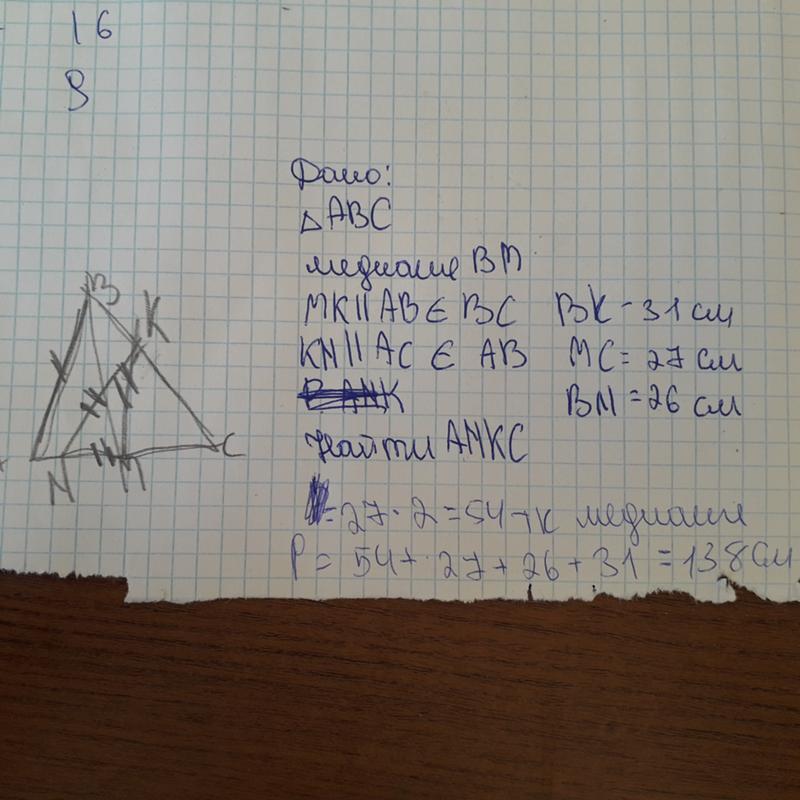 16
9
Дано:
△ABC
медиана BM
MK || AB ∈ BC BK - 31 см
KN || AC ∈ AB MC = 27 см
BN = 26 см
Найти ANKC
= 27 · 2 = 54 - тк медиана
P = 54 + 27 + 26 + 31 = 138 см
B
K
C
M
N